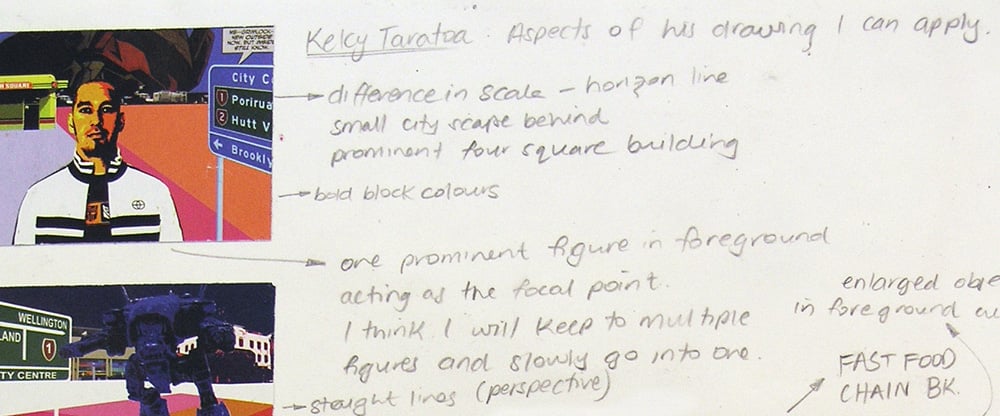 Kelcy Taratoa : Aspects of his drawing I can apply.
difference in scale – horizon line
small city scape behind
prominent four square building
bold block colours
one prominent figure in foreground
acting as the focal point.
I think I will keep to multiple
figures and slowly go into one.
straight lines (perspective)
enlarged obje
in foreground
FAST FOOD
CHAIN BK.
NEW OUTSIDE
NOW, BUT INSIDE
STILL KNOW.
SQUARE
City C
1 Porirua
2 Hutt V
Brookly
WELLINGTON
LAND
1
TY CENTRE